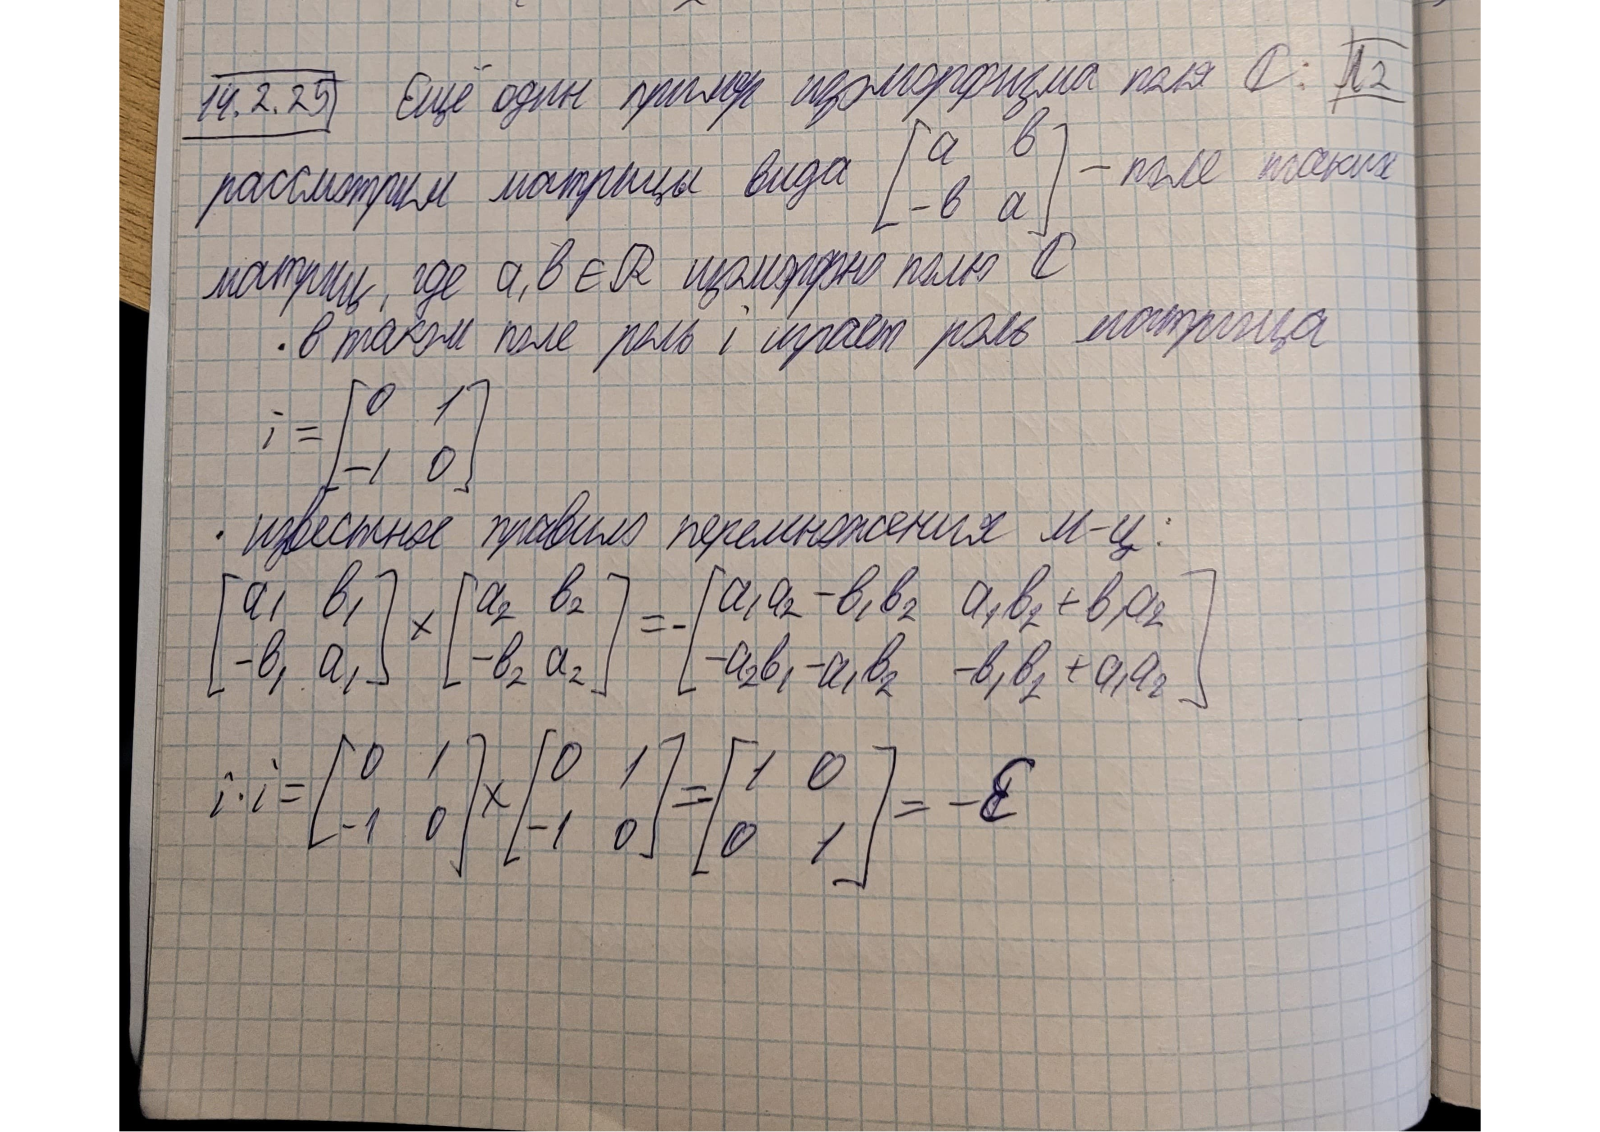 14.2.25 Ещё один пример изоморфизма поля ℂ: Л2
рассмотрим матрицы вида [a b; -b a] – поле таких
матриц, где a, b ∈ ℝ изоморфно полю ℂ
· в таком поле роль i играет роль матрица
i = [0 1; -1 0]
· известное правило перемножения м-ц:
[a₁ b₁; -b₁ a₁] × [a₂ b₂; -b₂ a₂] = -[a₁a₂ - b₁b₂ a₁b₂ + b₁a₂; -a₂b₁ - a₁b₂ -b₁b₂ + a₁a₂]
i·i = [0 1; -1 0] × [0 1; -1 0] = -[1 0; 0 1] = -E